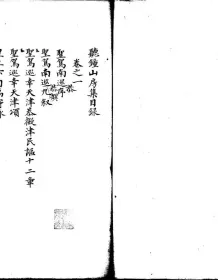 聽鐘山房集目錄
卷之一
聖駕南巡序
聖駕南巡九叙
聖駕巡幸天津恭擬津民謳十二章
聖駕巡幸天津頌